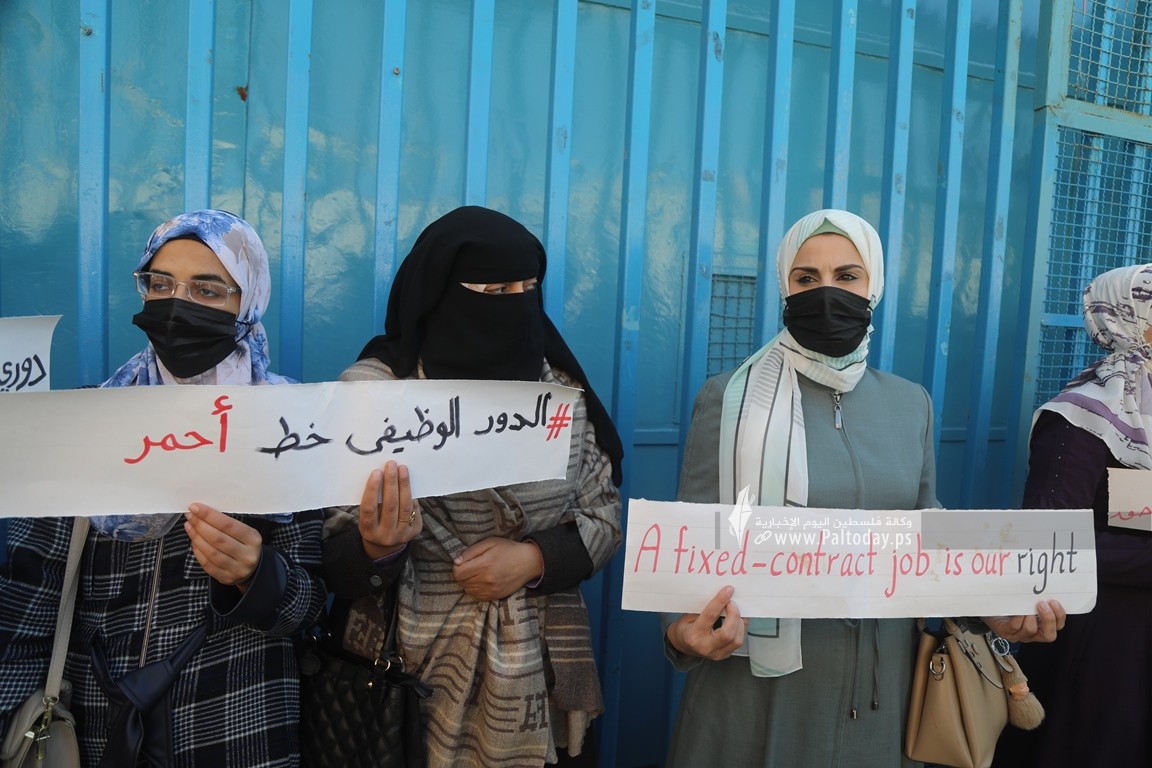 دوري
#الدور الوظيفي خط أحمر
وكالة فلسطين اليوم الإخبارية
www.Paltoday.ps
A fixed-contract job is our right